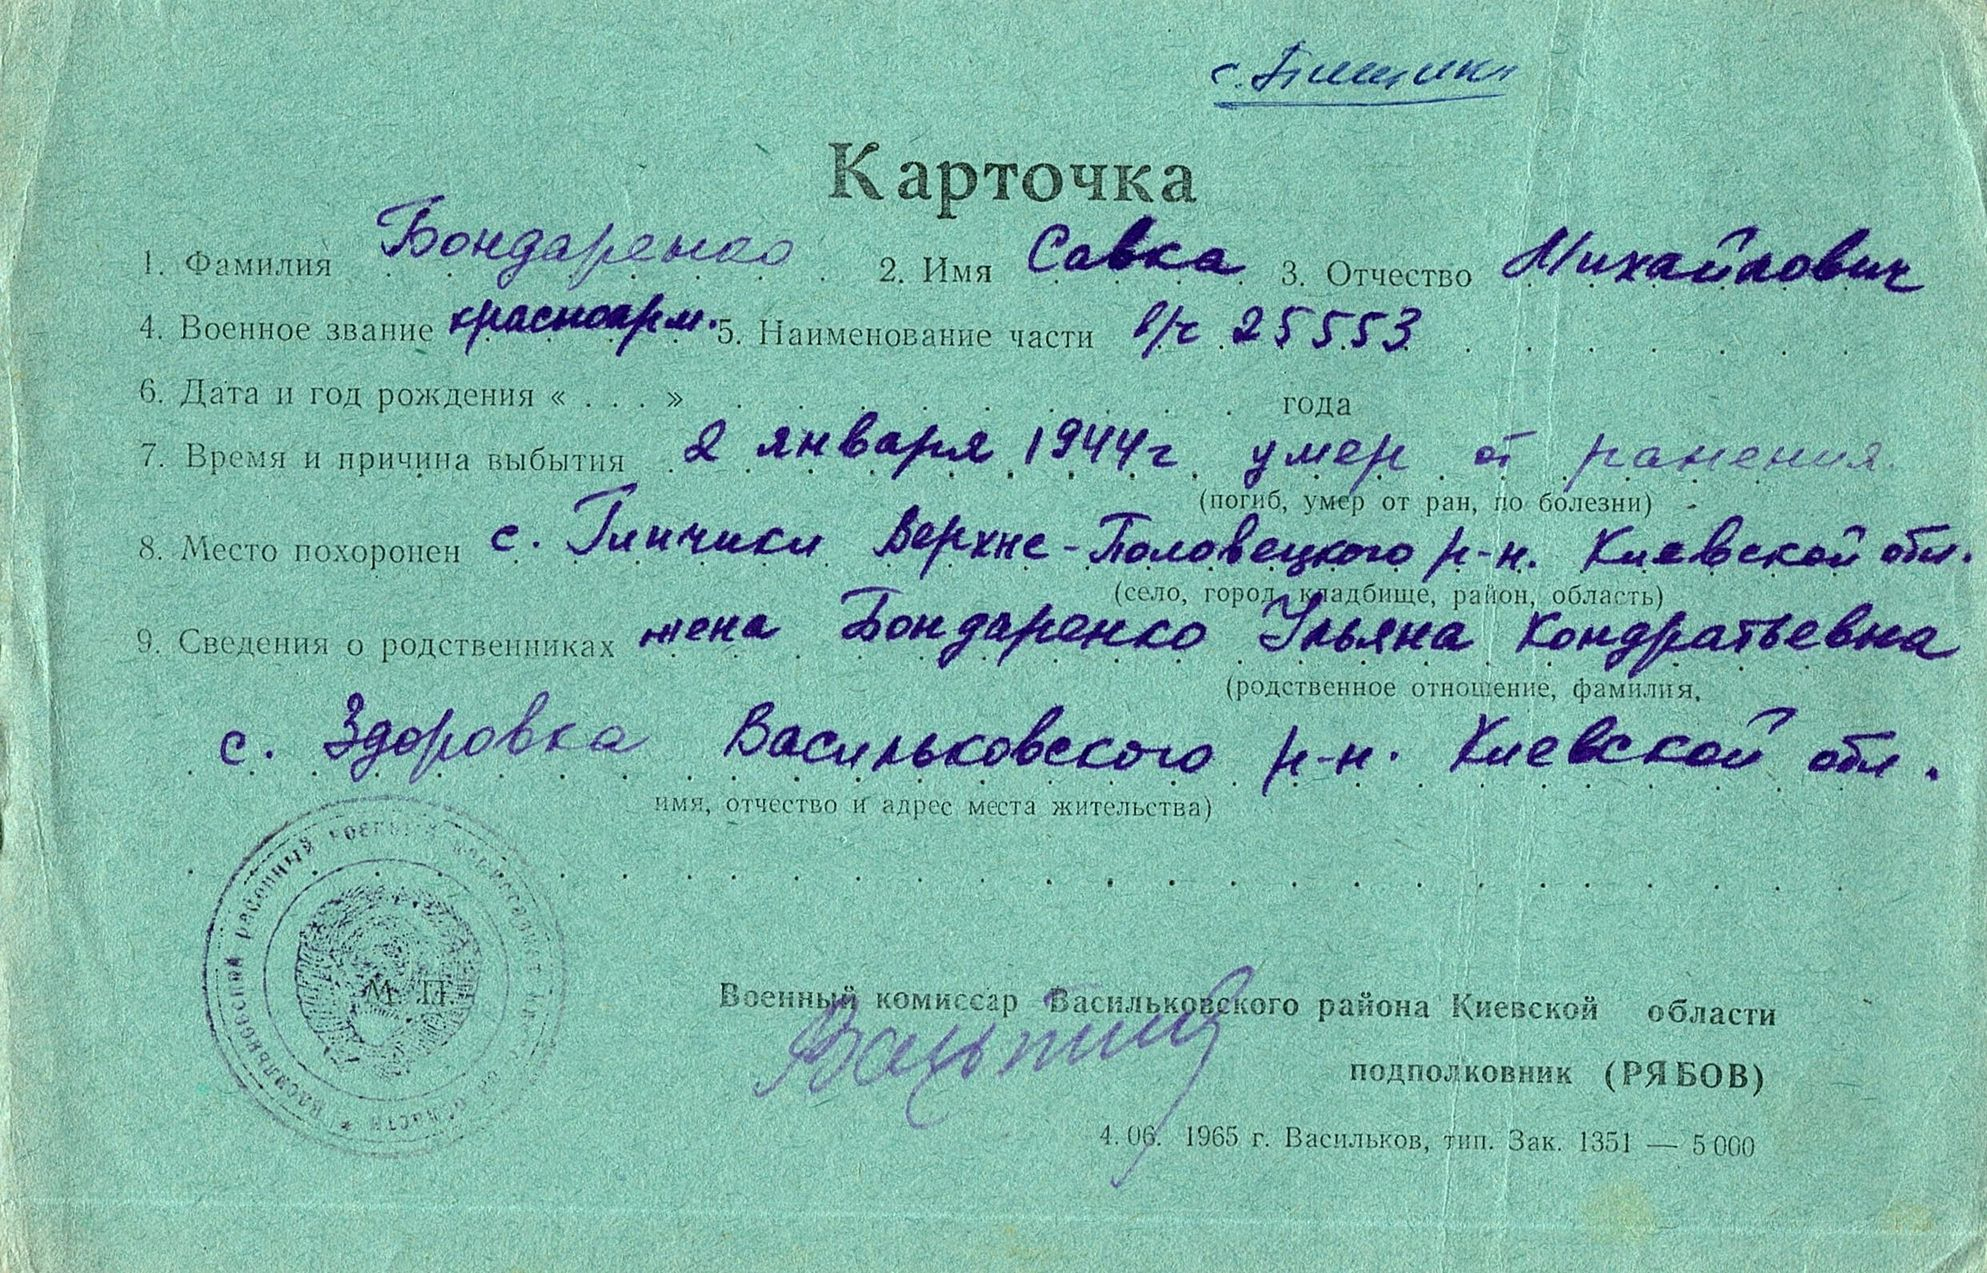 с. Пищики
Карточка
1. Фамилия Бондаренко 2. Имя Савка 3. Отчество Михайлович
4. Военное звание красноарм. 5. Наименование части в/ч 25553
6. Дата и год рождения « . . . » года
7. Время и причина выбытия 2 января 1944 г. умер от ранения
(погиб, умер от ран, по болезни)
8. Место похоронен с. Пинчики Верхне-Половецкого р-н. Киевской обл.
(село, город, кладбище, район, область)
9. Сведения о родственниках жена Бондаренко Ульяна Кондратьевна
(родственное отношение, фамилия,
с. Здоровка Васильковского р-н. Киевской обл.
имя, отчество и адрес места жительства)
Васильковский районный военный комиссариат
М. П.
Военный комиссар Васильковского района Киевской области
подполковник (РЯБОВ)
4. 06. 1965 г. Васильков, тип. Зак. 1351 — 5 000